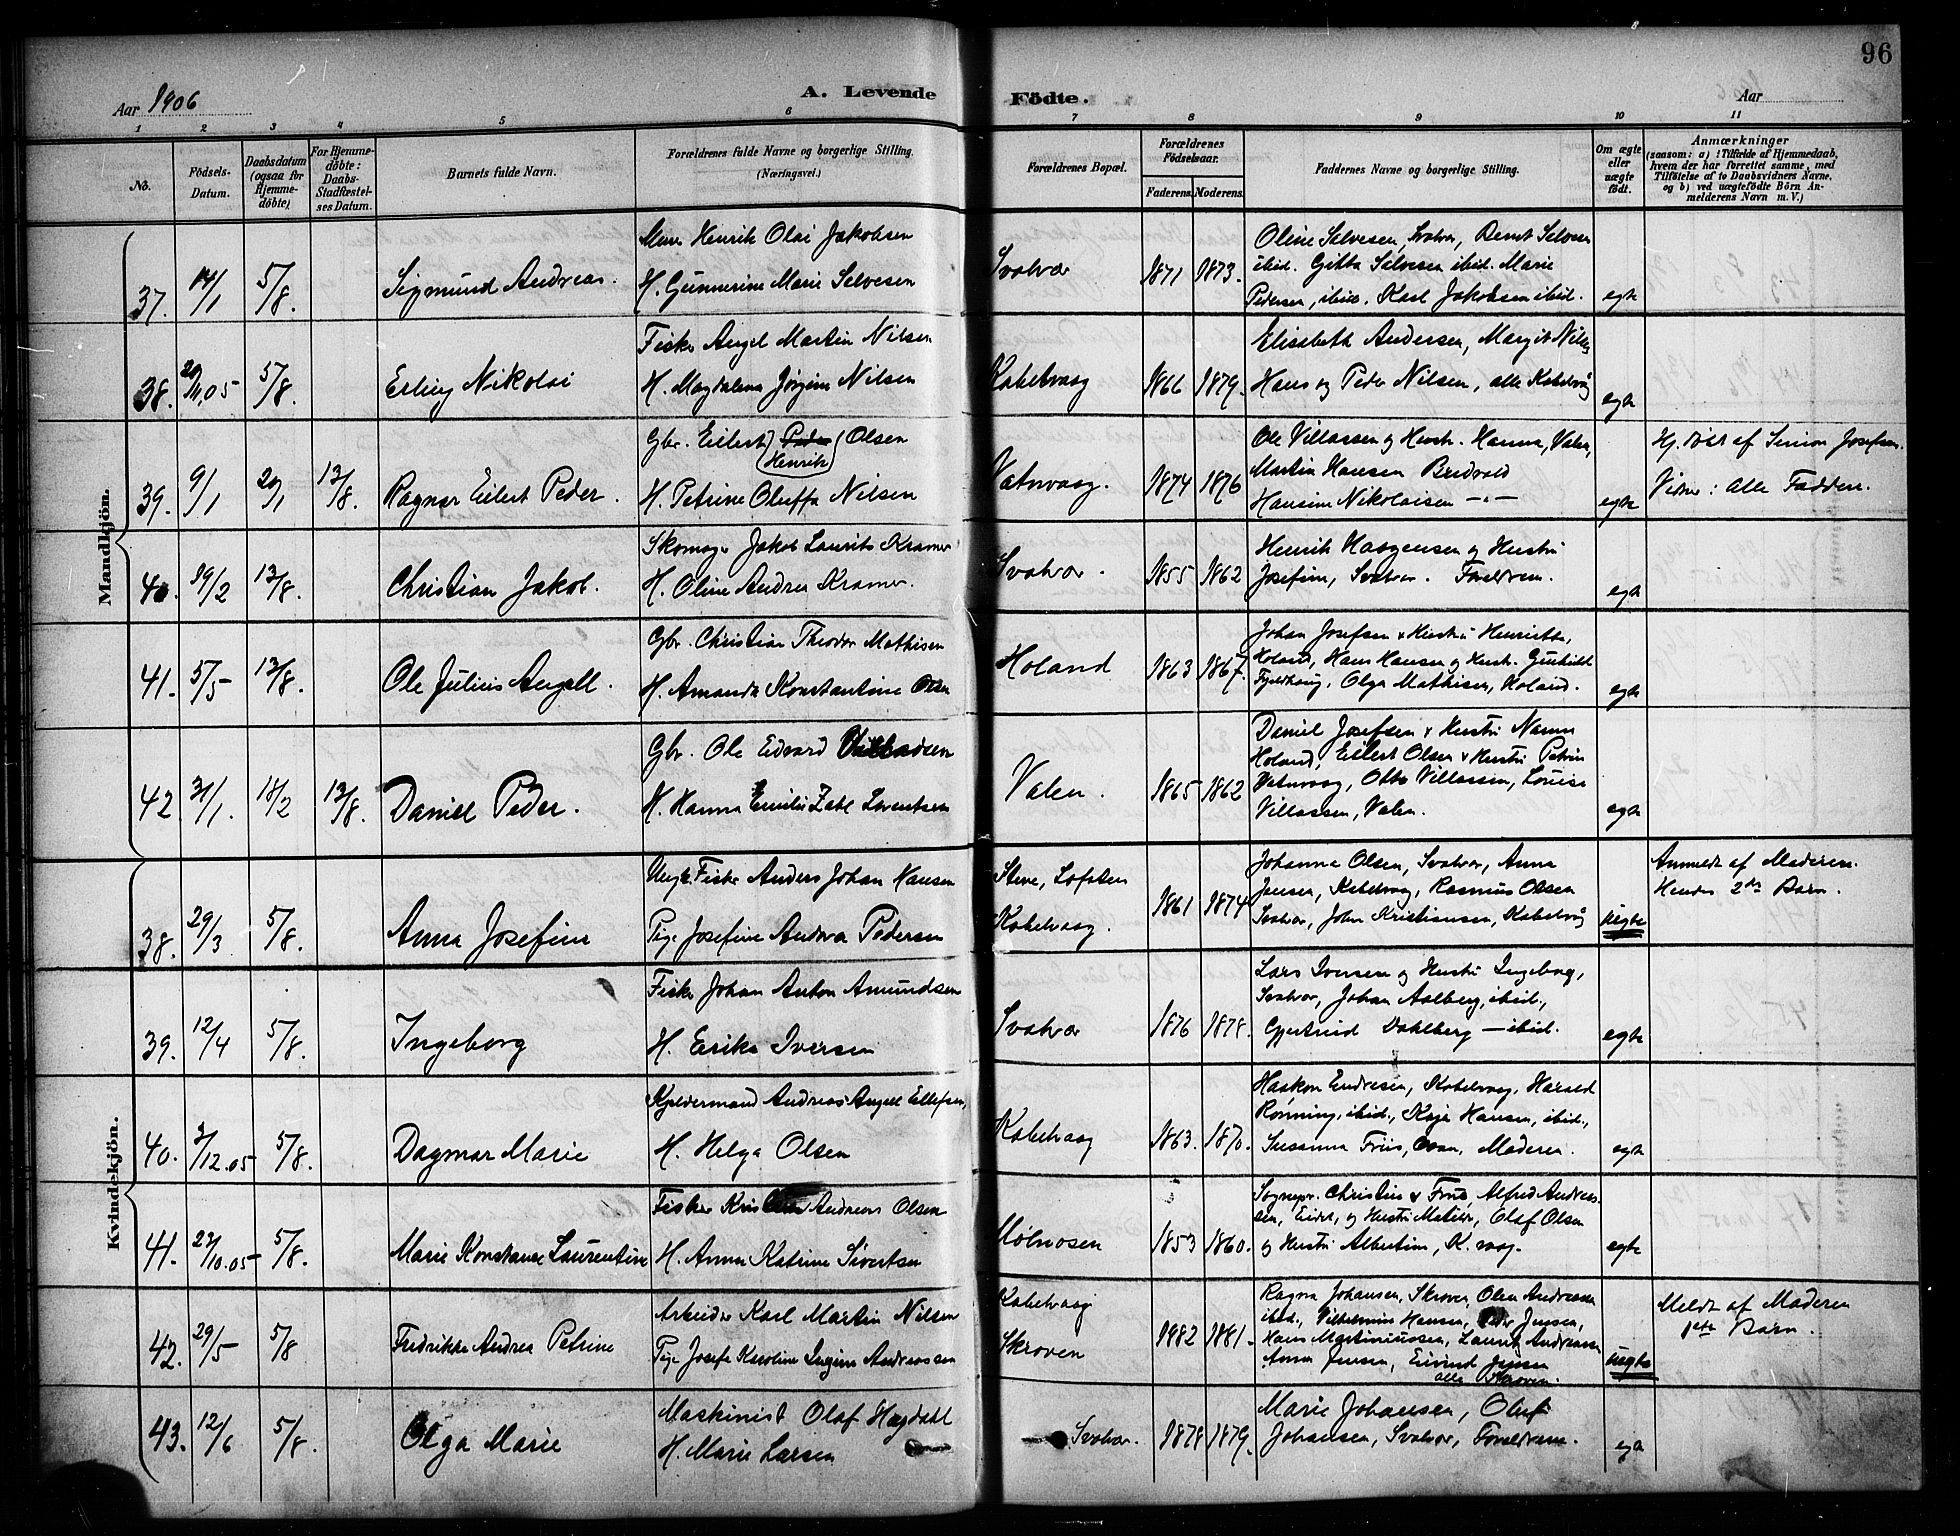 96
Aar 1906
A. Levende Födte.
Aar
1 2 3 4 5 6 7 8 9 10 11
No.
Födsels-Datum.
Daabsdatum (ogsaa for Hjemme-döbte)
For Hjemme-döbte: Daabs-Stadfæstel-ses Datum.
Barnets fulde Navn.
Forældrenes fulde Navne og borgerlige Stilling.
(Næringsvei.)
Forældrenes Bopæl.
Forældrenes Födselsaar.
Faderens. Moderens.
Faddernes Navne og borgerlige Stilling.
Om ægte eller uægte födt.
Anmærkninger
(saasom: a) i Tilfælde af Hjemmedaab,
hvem der har forrettet samme, med
Tilföielse af to Daabsvidners Navne,
og b) ved uægtefödte Börn An-
melderens Navn m. V.)
Mandkjön.
37. 14/1 5/8. Sigmund Andreas.
Murer Henrik Olai Jakobsen
H. Gunnerine Marie Selvesen
Svolvær 1871 1873.
Oline Salvesen, Svolvær, Bernt Selvesen
ibid. Gitta Salvesen ibid. Marie
Pedersen, ibid. Karl Jakobsen ibid.
egte
38. 20/11.05 5/8. Erling Nikolai
Fisker Angel Martin Nilsen
H. Magdalena Jørgine Nilsen
Kabelvaag 1866 1879.
Elisabeth Andersen, Margit Nilsen
Hans og Peder Nilsen, alle Kabelvåg
egte
39. 9/1 20/1 12/8. Ragnar Eilert Peder.
Gbr. Eilert (Peder Henrik) Olsen
H. Petrine Oluffa Nilsen
Vatnvaag. 1874 1876
Ole Villassen og Hustr. Hanna, Valen,
Martin Hansen Breivold
Hansine Nikolaisen — " —
egte
Hj. døbt af Simon Josefsen.
Vidner: Alle Faddere.
40. 19/2 12/8. Christian Jakob.
Skomager Jakob Laurits Kramer
H. Oline Andrea Kramer.
Svolvær. 1855 1862
Henrik Haagensen og Hustru
Josefine, Svolvær. Forældrene.
egte
41. 5/5 12/8. Ole Julius Angell.
Gbr. Christian Theodor Mathisen
H. Amanda Konstantine Olsen
Holand 1863 1867.
Johan Josefsen & Hustru Henriette,
Holand, Hans Hansen og Hustr. Gunhild
Olga Mathisen, Holand.
egte
42 31/1. 18/2 12/8. Daniel Peder.
Gbr. Ole Edvard
H. Hanna Emilie Zahl Lorentsen
Valen. 1865 1862
Daniel Josefsen & Hustru Nanna
Holand, Eilert Olsen & Hustru Petrine
Vatnvaag, Otto Villassen, Louise
Villassen, Valen.
egte
Kvindekjön.
38. 29/3 5/8. Anna Josefine
Ungk. Fisker Anders Johan Hansen
Pige Josefine Andrea Pedersen
Steve, Lofoten
Kabelvaag. 1861 1874
Johanna Olsen, Svolvær, Anna
Jensen, Kabelvaag, Rasmus Olsen
Svolvær, John Kristiansen, Kabelvåg
uegte
Anmeldt af Moderen.
Hendes 2det Barn.
39. 12/4 5/8. Ingeborg
Fisker Johan Anton Amundsen
H. Erika Iversen
Svolvær 1876 1878.
Lars Iversen og Hustru Ingeborg,
Svolvær, Johan Aalberg, ibid.,
Gjertrud Dahlberg — ibid.
egte
40. 3/12.05 5/8. Dagmar Marie
Kjeldermand Andreas Angell Ellefsen,
H. Helga Olsen
Kabelvaag 1863. 1870.
Haakon Endresen, Kabelvaag, Harald
Rønning, ibid., Kaja Hansen, ibid.,
Susanna Friis, Moderen.
egte
41. 27/10.05 5/8. Marie Konstanse Laurentine
Fisker Kristian Andreas Olsen
H. Anna Katrine Sivertsen
Mølnosen 1853 1860.
Sognepr. Christie & Frue, Alfred Andreas-
sen, Eidet, og Hustru Matilde, Olaf Olsen
og Hustru Albertine, K.vaag.
egte
42. 29/5 5/8 Fredrikke Andrea Petrine
Arbeider Karl Martin Nilsen
Pige Josefa Karoline Ingine Andreassen
Kabelvaag
Skroven 1882 1881.
Ragna Johansen, Skroven, Olea Andreassen
ibid., Vilhelmine Hansen, Peder Jensen,
Hans Martinussen, Laurits Andreassen
Anna Jensen, Eivind Jensen
alle Skroven.
uegte
Meldt af Moderen
1ste Barn.
43. 12/6 5/8. Olga Marie
Maskinist Olaf Hagdahl
H. Marie Larsen
Svolvær. 1878 1879.
Marie Johansen, Oluf
Johansen, Svolvær, Forældrene.
egte